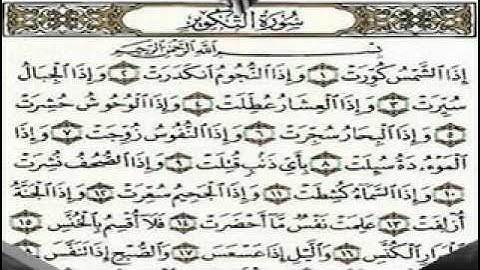 سُورَةُ التَّكْوِيرِ
بِسْمِ اللَّهِ الرَّحْمَٰنِ الرَّحِيمِ
إِذَا الشَّمْسُ كُوِّرَتْ ١ وَإِذَا النُّجُومُ انكَدَرَتْ ٢ وَإِذَا الْجِبَالُ
سُيِّرَتْ ٣ وَإِذَا الْعِشَارُ عُطِّلَتْ ٤ وَإِذَا الْوُحُوشُ حُشِرَتْ
٥ وَإِذَا الْبِحَارُ سُجِّرَتْ ٦ وَإِذَا النُّفُوسُ زُوِّجَتْ ٧ وَإِذَا
الْمَوْءُدَةُ سُئِلَتْ ٨ بِأَيِّ ذَنبٍ قُتِلَتْ ٩ وَإِذَا الصُّحُفُ نُشِرَتْ
١٠ وَإِذَا السَّمَاءُ كُشِطَتْ ١١ وَإِذَا الْجَحِيمُ سُعِّرَتْ ١٢ وَإِذَا الْجَنَّةُ
أُزْلِفَتْ ١٣ عَلِمَتْ نَفْسٌ مَّا أَحْضَرَتْ ١٤ فَلَا أُقْسِمُ بِالْخُنَّسِ ١٥
الْجَوَارِ الْكُنَّسِ ١٦ وَالَّيْلِ إِذَا عَسْعَسَ ١٧ وَالصُّبْحِ إِذَا تَنَفَّسَ